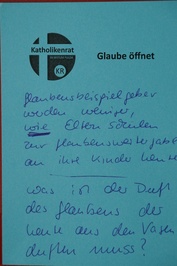 Katholikenrat
KR
Glaube öffnet
Glaubensbeispielgeber
werden weniger,
wie Eltern
zur Glaubensweitergabe
an ihre Kinder heute
Was ist der Duft
des Glaubens der
heute aus den Vasen
duften muss?